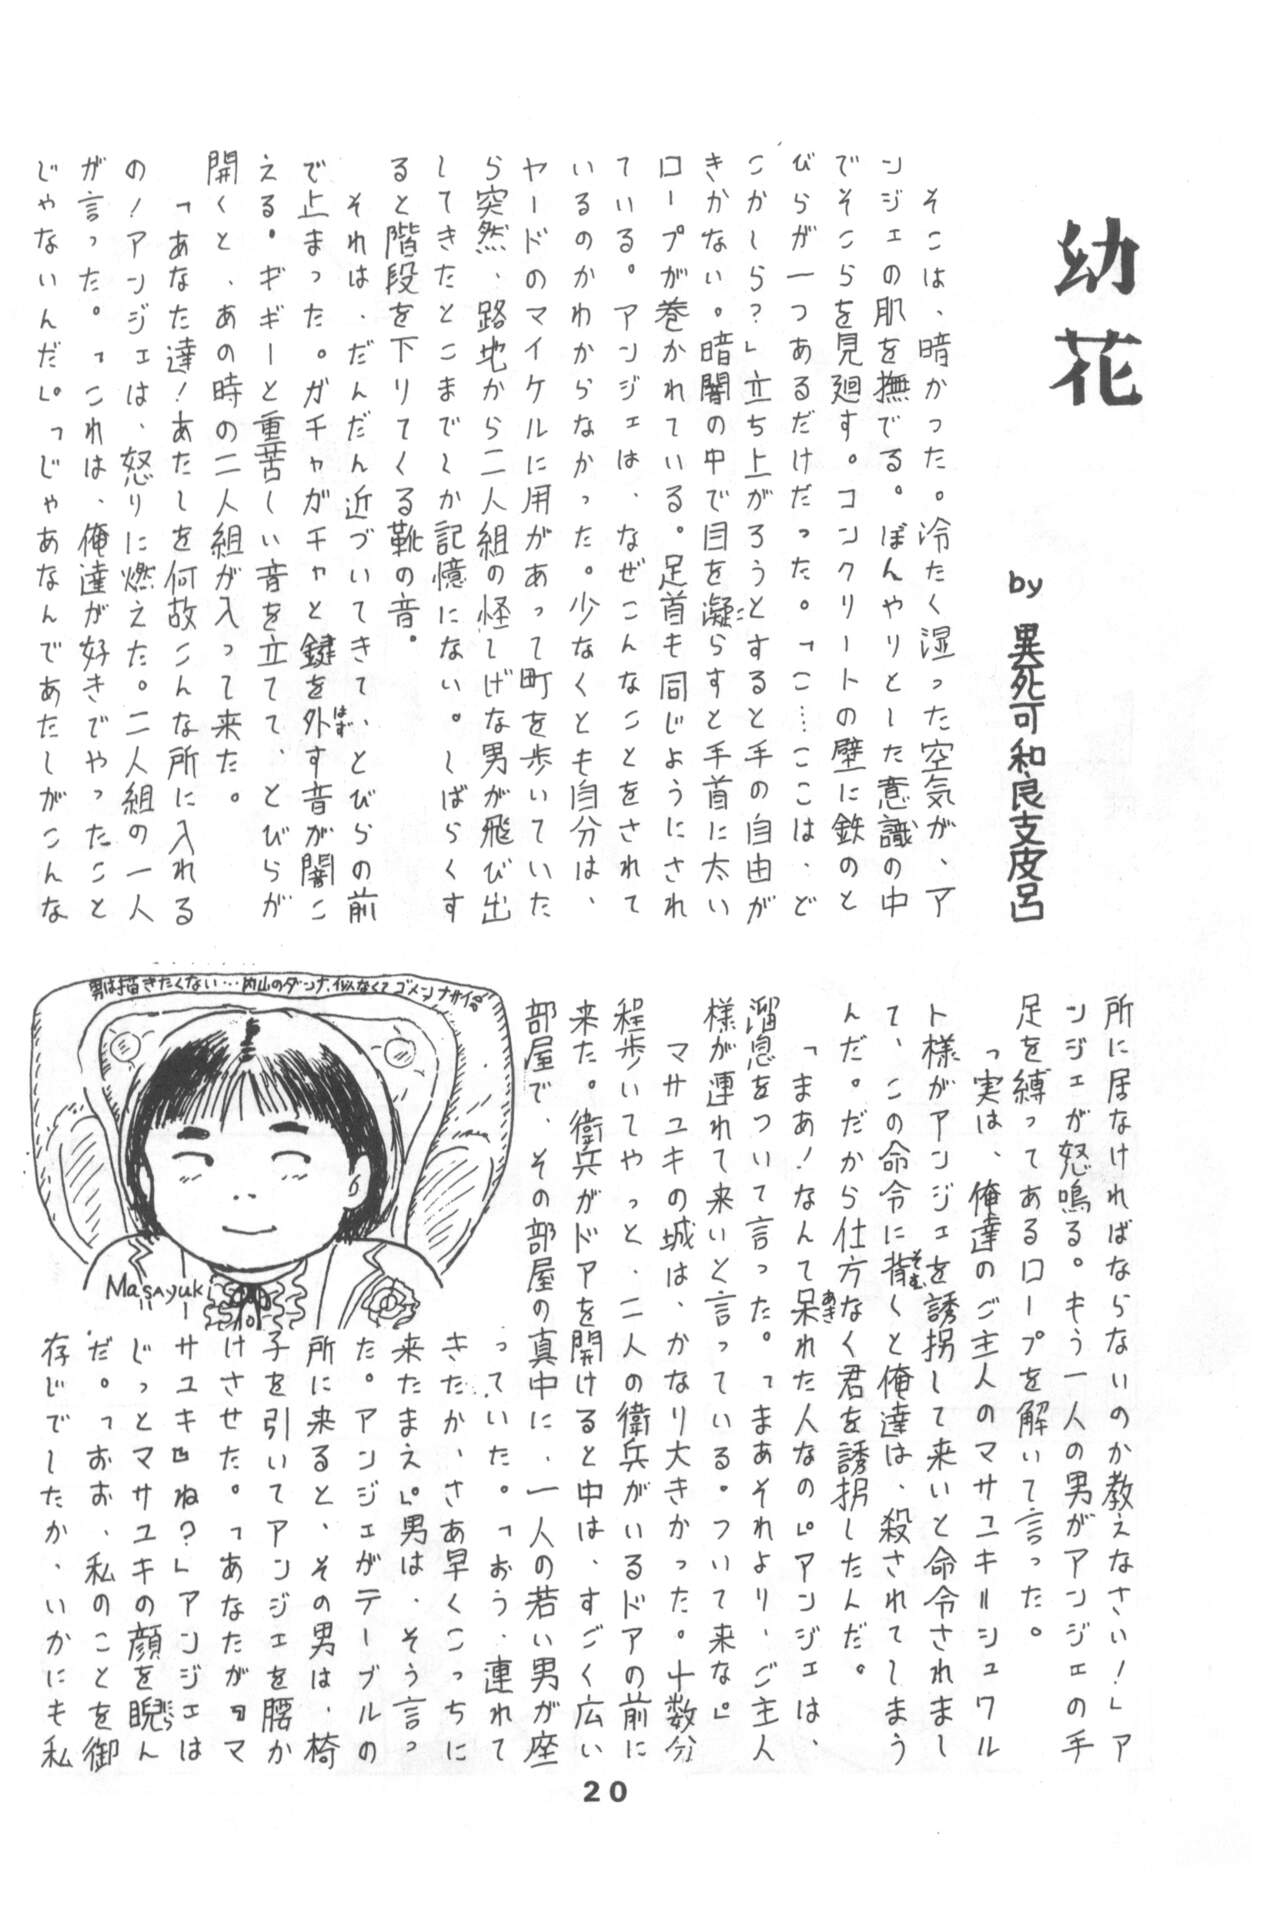 幼花
by 異死可和良支皮呂
そこは、暗かった。冷たく湿った空気が、ア
ンジェの肌を撫でる。ぼんやりとした意識の中
でそこらを見廻す。コンクリートの壁に鉄のと
びらが一つあるだけだった。「こ…ここは、ど
こかしら？」立ち上がろうとすると手の自由が
きかない。暗闇の中で目を凝らすと手首に太い
ロープが巻かれている。足首も同じようにされ
ている。アンジェは、なぜこんなことをされて
いるのかわからなかった。少なくとも自分は、
ヤードのマイケルに用があって町を歩いていた
ら突然、路地から二人組の怪しげな男が飛び出
してきたとこまでしか記憶にない。しばらくす
ると階段を下りてくる靴の音。
それは、だんだん近づいてきて、とびらの前
で止まった。ガチャガチャと鍵を外す音が聞こ
える。ギギーと重苦しい音を立てて、とびらが
開くと、あの時の二人組が入って来た。
「あなた達！あたしを何故こんな所に入れる
の！アンジェは、怒りに燃えた。二人組の一人
が言った。「これは、俺達が好きでやったこと
じゃないんだ。」「じゃあなんであたしがこんな
所に居なければならないのか教えなさい！」ア
ンジェが怒鳴る。もう一人の男がアンジェの手
足を縛ってあるロープを解いて言った。
「実は、俺達のご主人のマサユキ＝シュワル
ト様がアンジェを誘拐して来いと命令されまし
て、この命令に背くと俺達は、殺されてしまう
んだ。だから仕方なく君を誘拐したんだ。
「まあ！なんて呆れた人なの。」アンジェは、
溜息をついて言った。「まあそれより、ご主人
様が連れて来いと言っている。ついて来な。」
マサユキの城は、かなり大きかった。十数分
程歩いてやっと、二人の衛兵がいるドアの前に
来た。衛兵がドアを開けると中は、すごく広い
部屋で、その部屋の真中に、一人の若い男が座
っていた。「おう、連れて
きたか、さあ早くこっちに
来たまえ。」男は、そう言っ
た。アンジェがテーブルの
所に来ると、その男は、椅
子を引いてアンジェを腰か
けさせた。「あなたが『マ
サユキ』ね？」アンジェは
じっとマサユキの顔を睨ん
だ。「おお、私のことを御
存じでしたか、いかにも私
男は描きたくない…内山のダンナ、似なくてゴメンナサイ
Masayuki
20